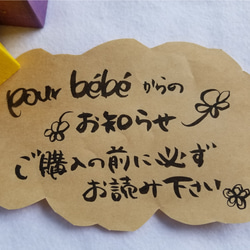 pour bébé からの
お知らせ
ご購入の前に必ず
お読み下さい